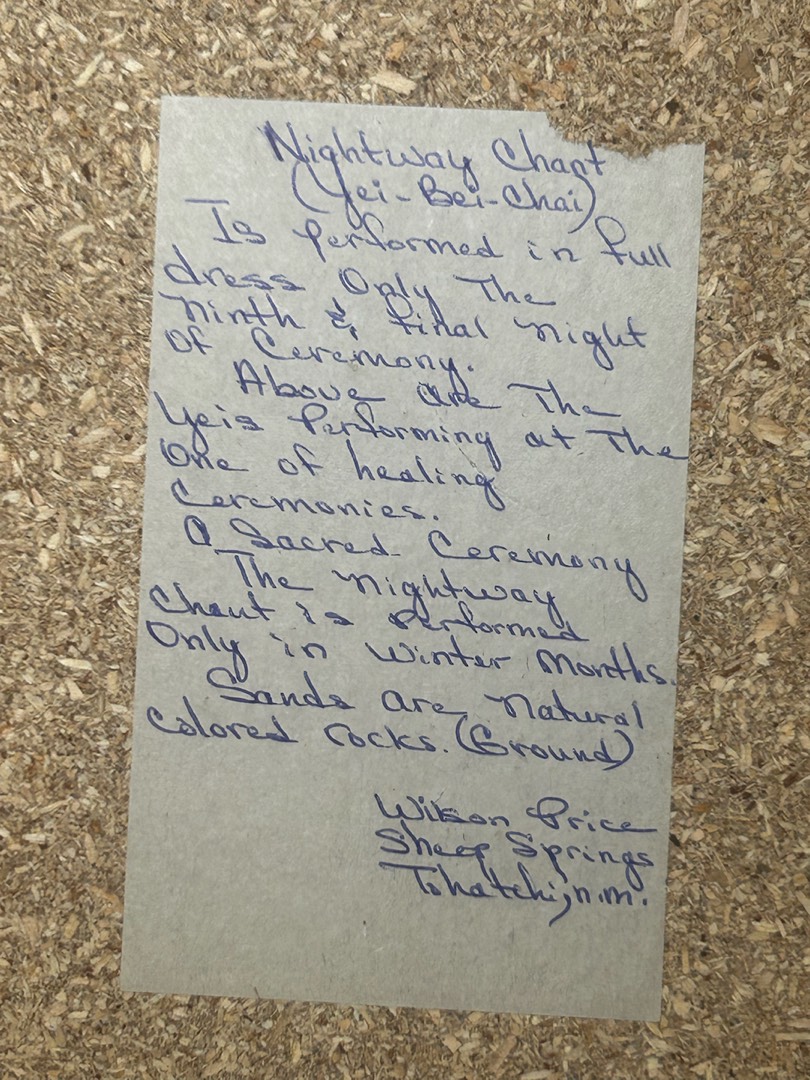 Nightway Chant
(Yei-Bei-Chai)
Is performed in full
dress Only The
Ninth & final night
of Ceremony.
Above are The
Yeis Performing at The
One of healing
Ceremonies.
A Sacred Ceremony
The nightway
Chant is Performed
Only in winter months.
Sands are natural
colored rocks. (Ground)
Wilson Price
Sheep Springs
Tohatchi, n.m.